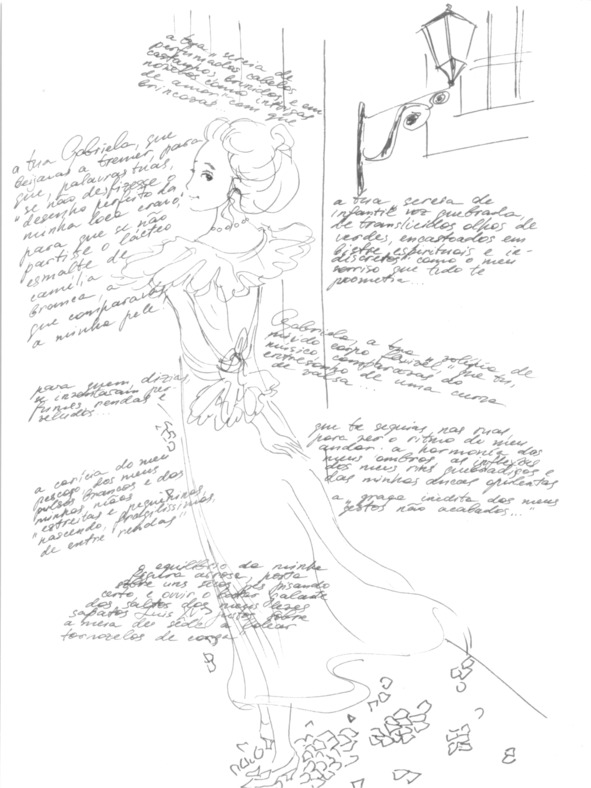 a tua "sereia de
perfumados cabelos
castanhos, brunidos e em
novelos como intrigas
de amor" com que
brincavas
a tua Gabriela, que
beijavas a tremer, para
que, palavras tuas,
"se não desfizesse o
desenho perfeito da
minha boca cravo,
para que se não
partisse o lácteo
esmalte de
camélia
branca a
que comparavas
a minha pele
a tua sereia de
infantil voz quebrada,
de translúcidos olhos de
verdes, encastoados em
bistre espirituais e in-
discretos" como o meu
sorriso que tudo te
prometia...
Gabriela, a tua
corpo flexível" que tu,
músico comparavas ao
de uma curva
de valsa...
para quem, dizias,
se inventaram per-
fumes rendas e
veludos...
que te seguias nas ruas,
para ver o ritmo do meu
andar. a harmonia dos
meus ombros as inflexões
dos meus rins quebradiços e
das minhas ancas opulentas
a "graça inédita dos meus
gestos não acabados..."
a carícia do meu
pescoço, dos meus
pulsos brancos e das
minhas mãos
"estreitas e pequeninas,
nascendo, fragilíssimas,
de entre rendas"
o equilíbrio da minha
figura airosa, posta
sobre uns secos pés pisando
certo e ouvir o galante
dos saltos dos meus
sapatos Luís XV justos sobre
a meia de seda a
tornozelos de corça